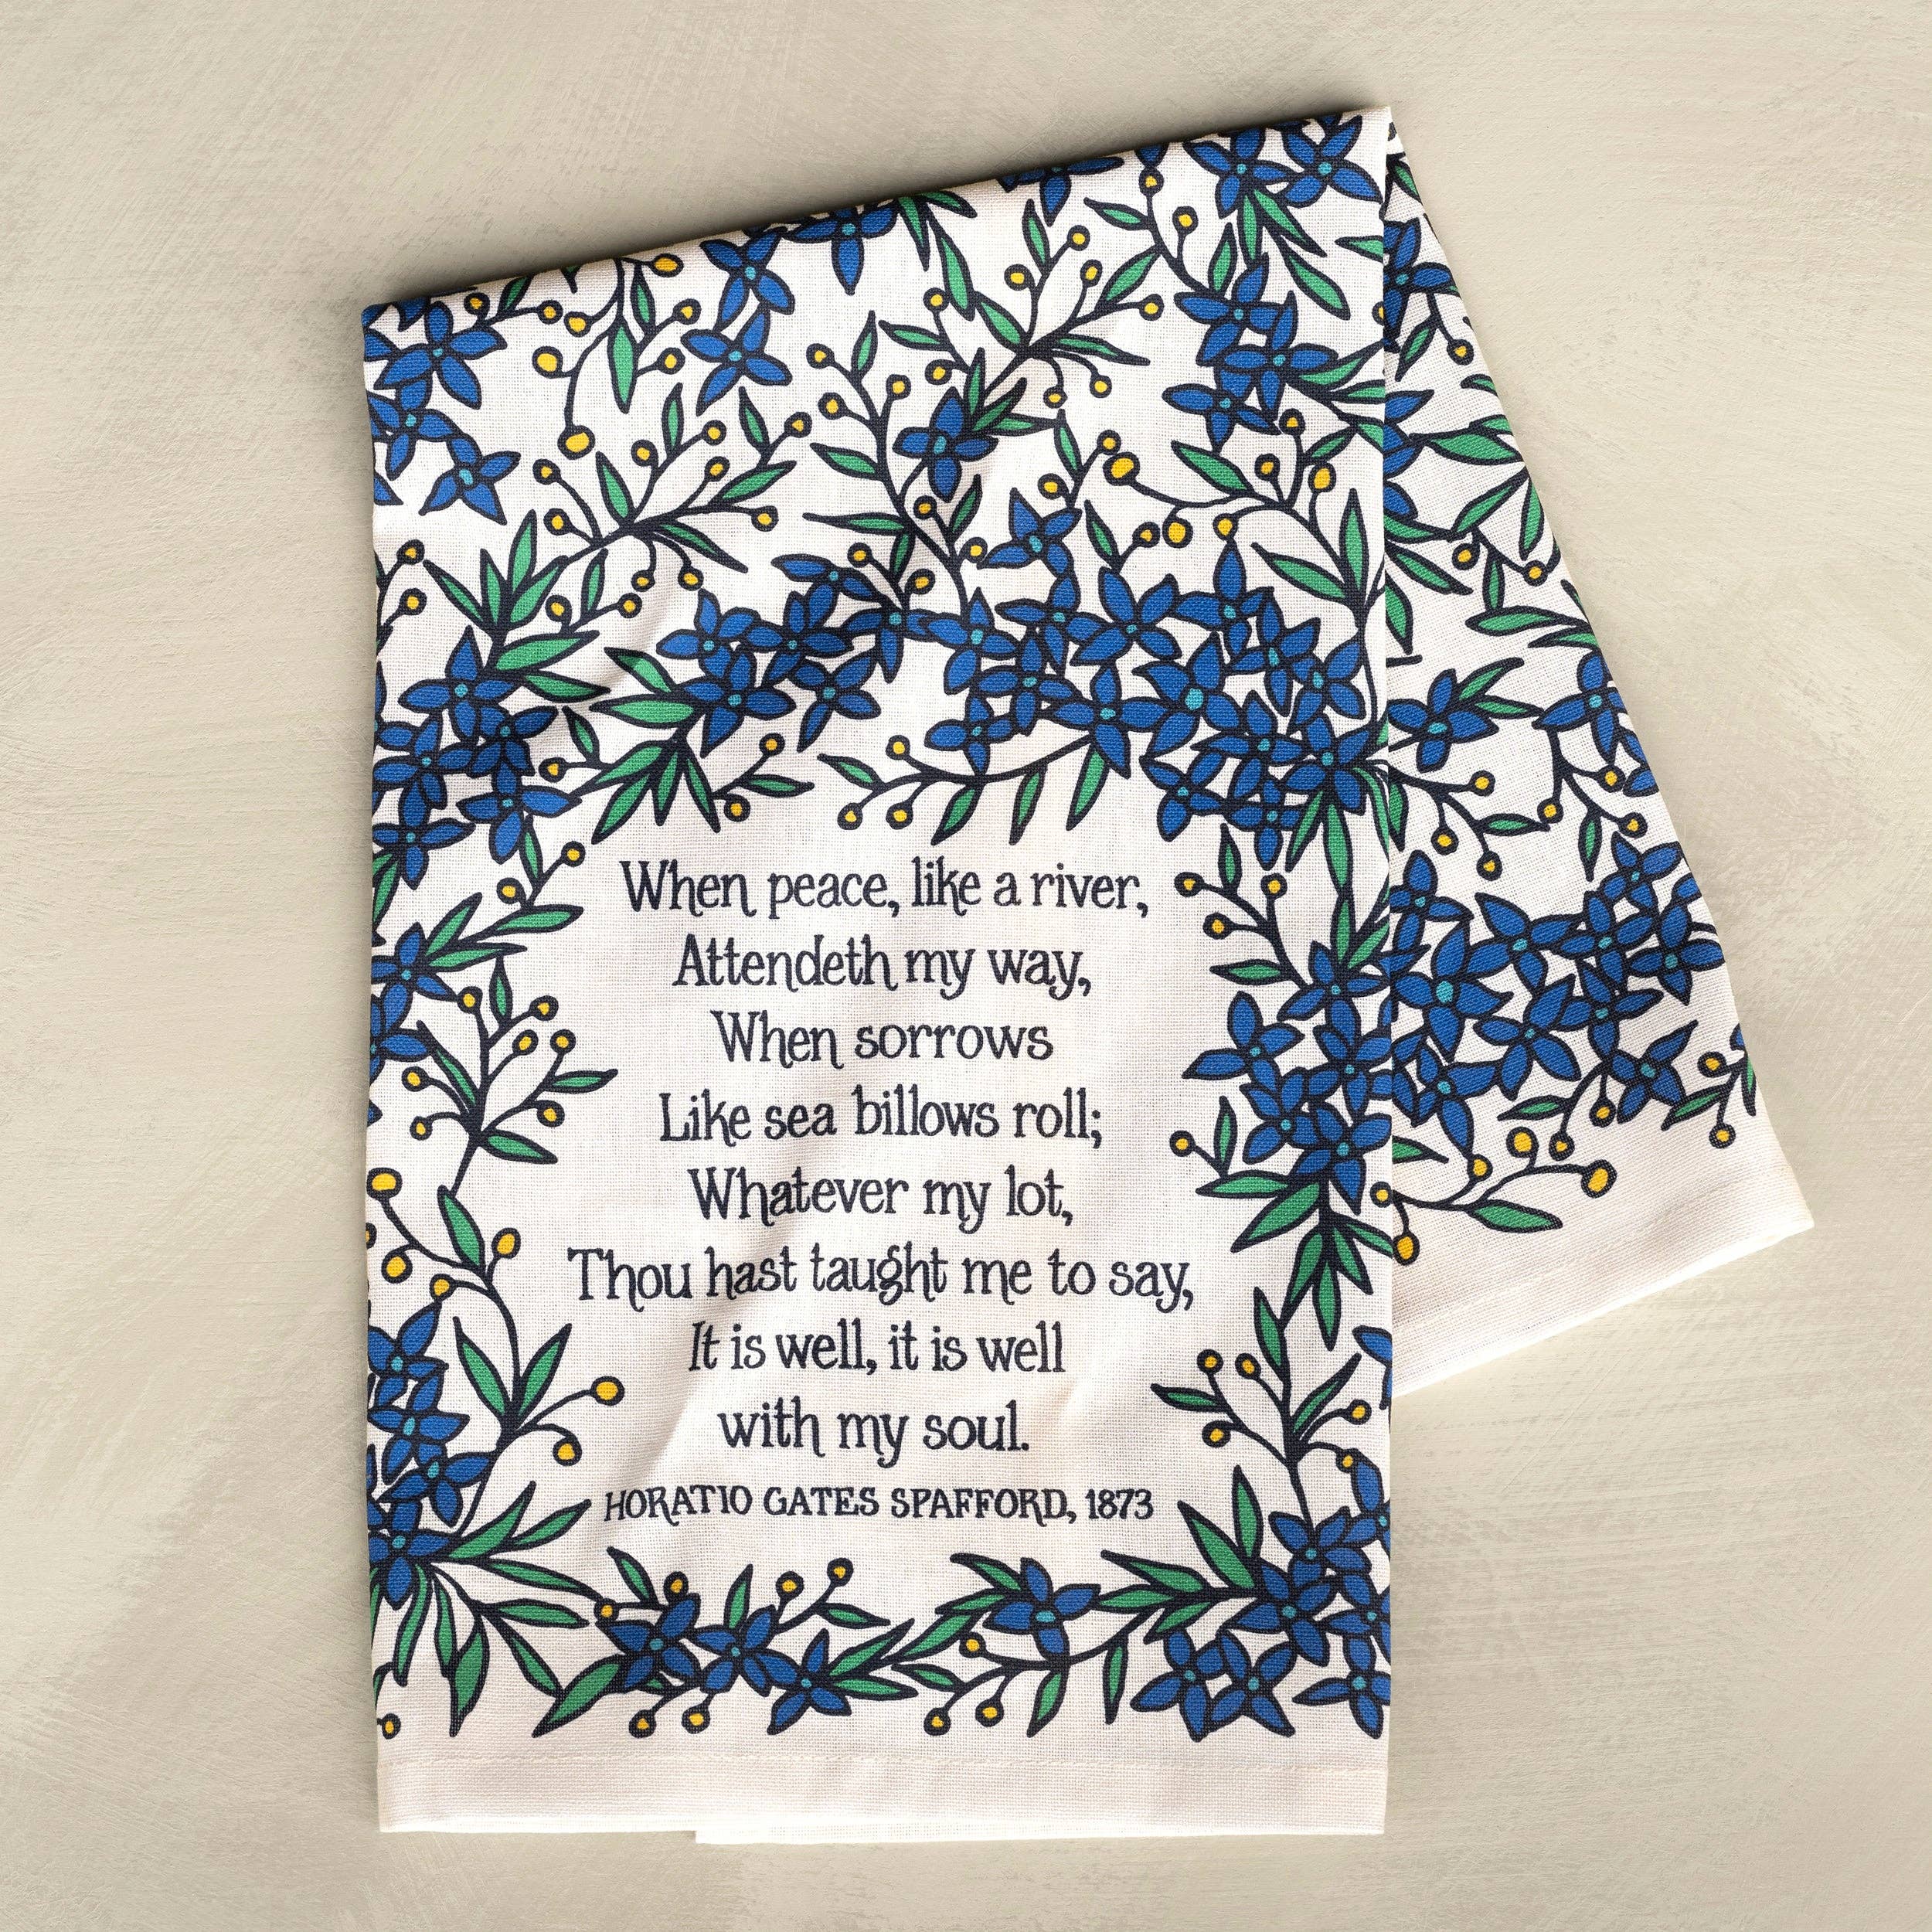 When peace, like a river,
Attendeth my way,
When sorrows
Like sea billows roll;
Whatever my lot,
Thou hast taught me to say,
It is well, it is well
with my soul.
HORATIO GATES SPAFFORD, 1873